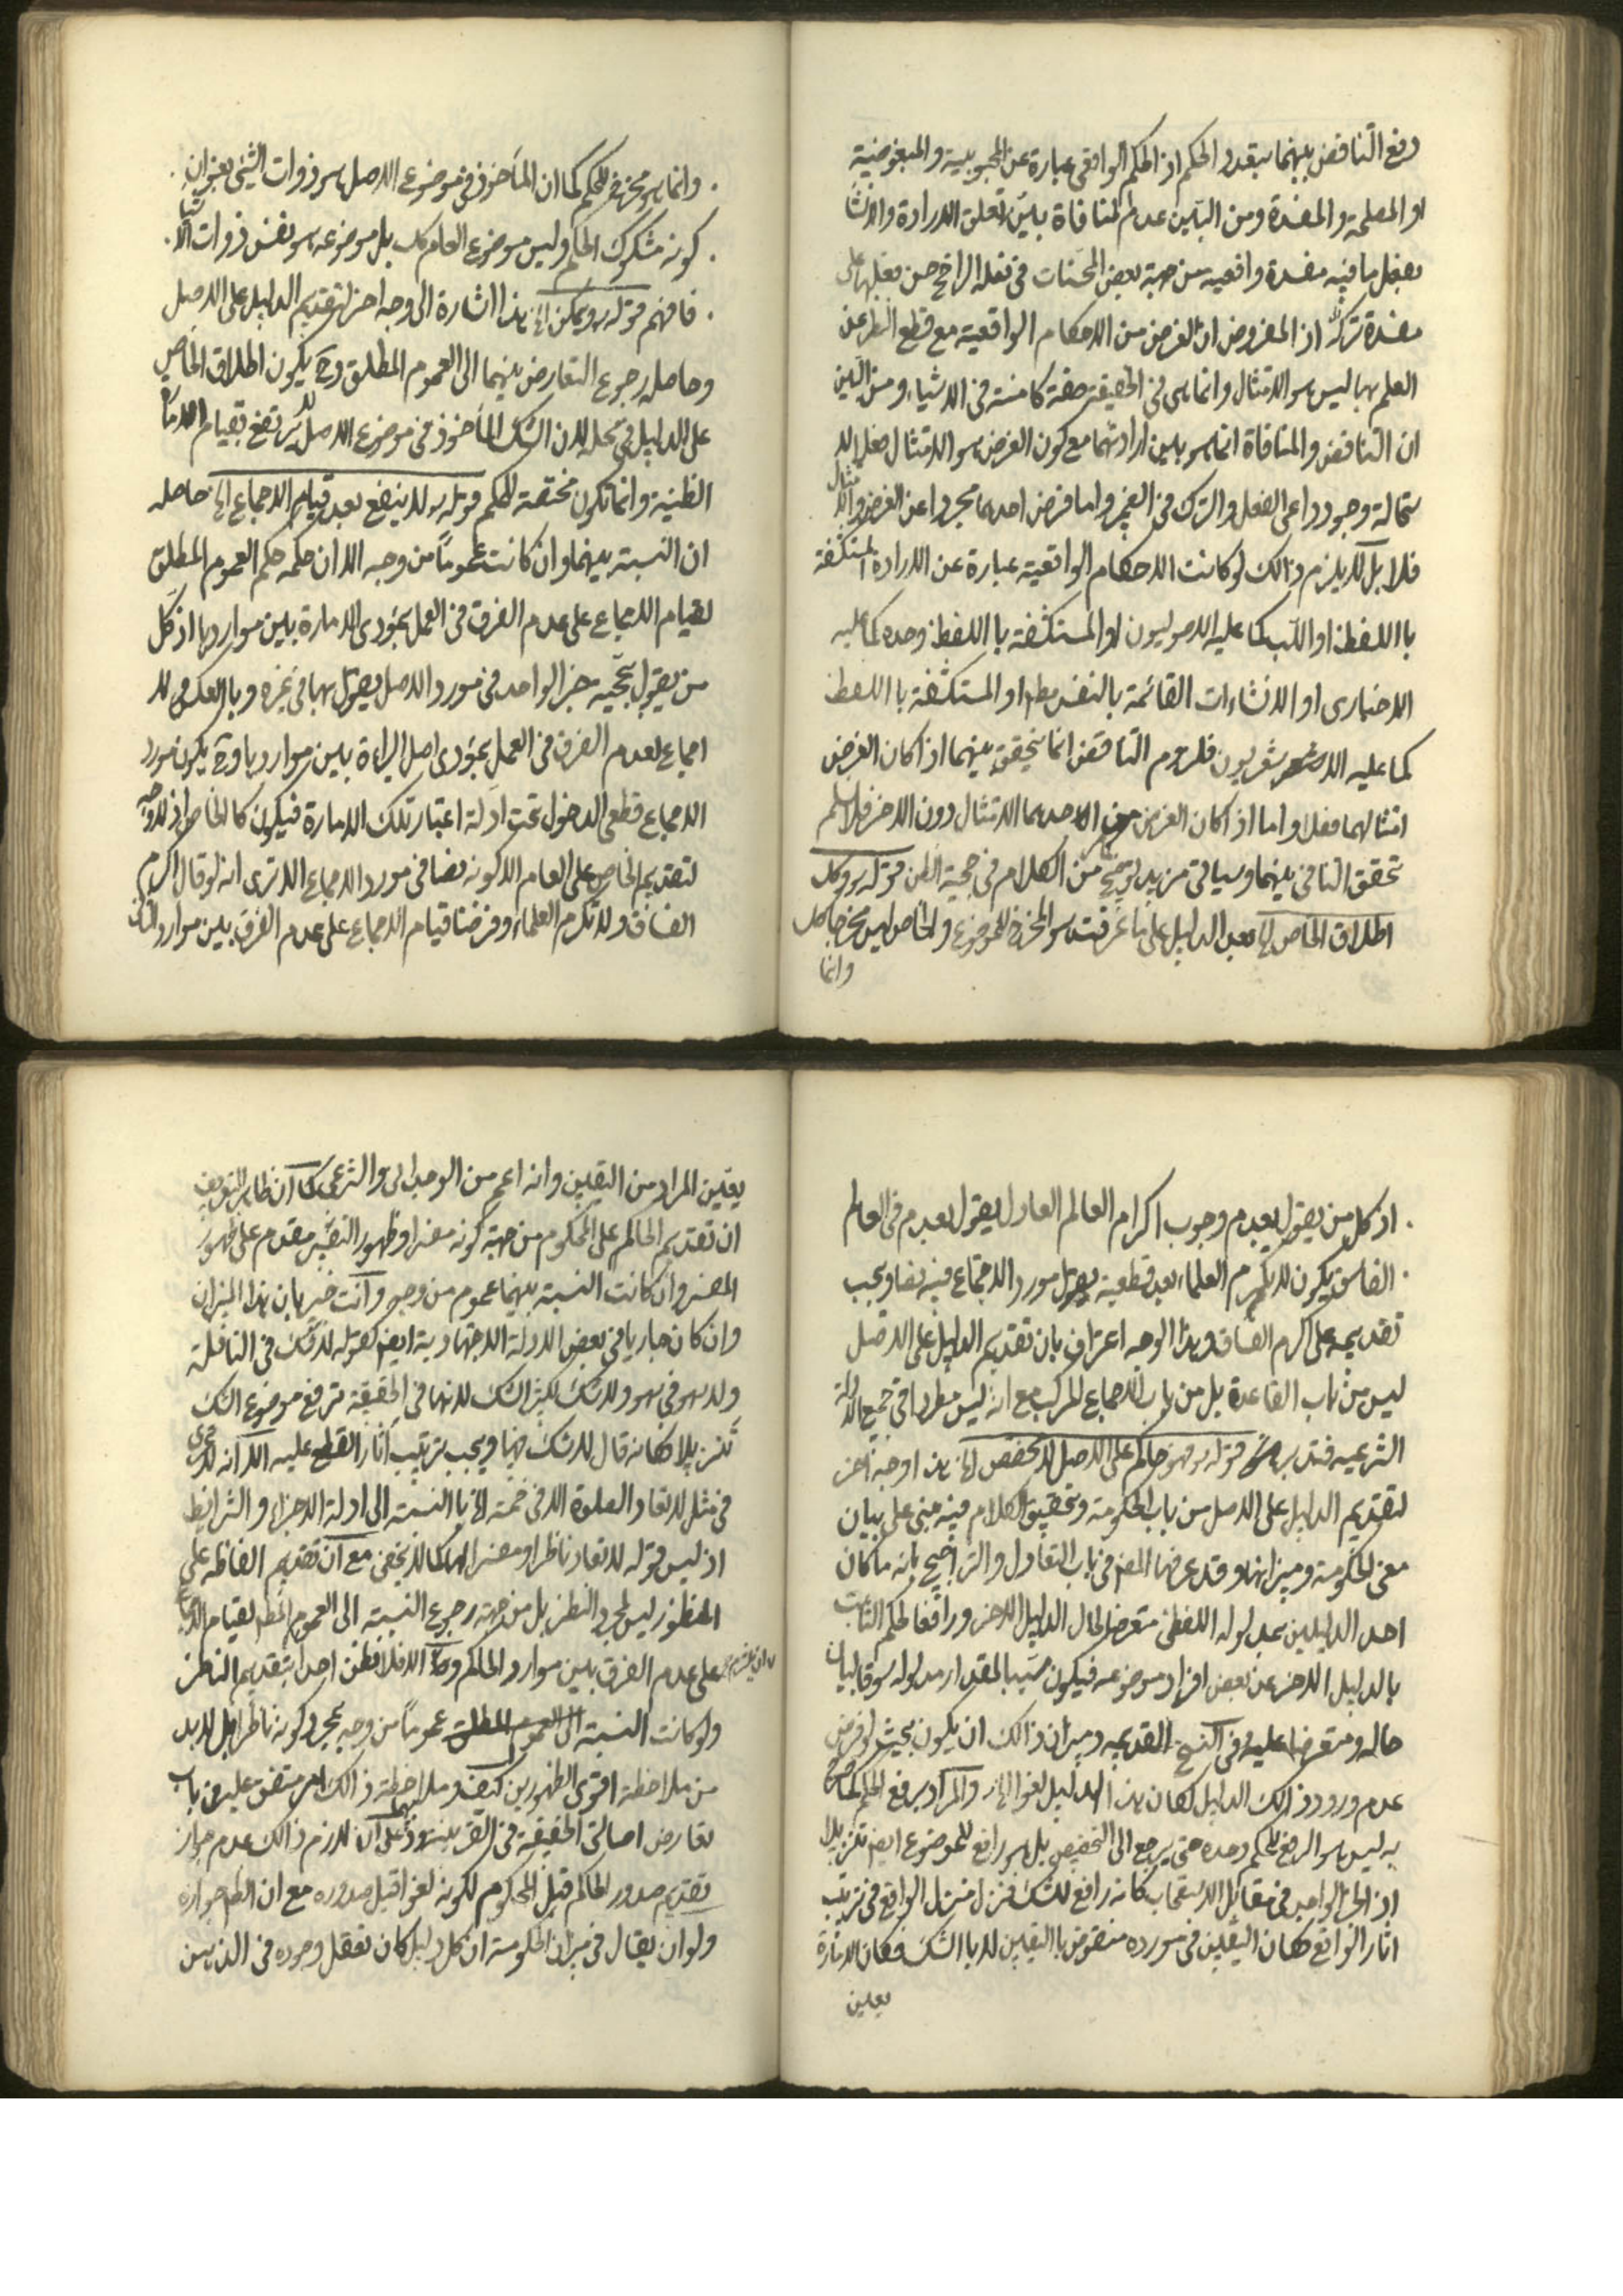 دفع التناقض بينهما بتعدد الحكم اذ الحكم الواقعى عبارة عن المحبوبية والمبغوضية
او المصلحة والمفسدة ومن البين عدم المنافاة بين تعلق الارادة والانشاء
بفعل ما فيه مفسدة واقعيه من جهة بعض المحسنات فى فعله الراجح حسن فعلها على
مفسدة تركه اذ المفروض ان الغرض من الاحكام الواقعية مع قطع النظر عن
العلم بها ليس هو الامتثال وانما هى فى الحقيقة صفة كامنة فى الاشياء ومن البين
ان التناقض والمنافاة انما هو بين ارادتهما مع كون الغرض هو الامتثال فعلا لا
ستحالة وجود داعى الفعل والترك فى واما فرض احدهما مجردا عن الغرض والامتثال
فلا بل لا يلزم ذالك لو كانت الاحكام الواقعيه عبارة عن الارادة المستكشفة
باللفظ او اللب كما عليه الاصوليون او المستكشفة باللفظ وحده كما عليه
الاخبارى او الانشاءات القائمة بالنفس مط او المستكشفة باللفظ
كما عليه الاشعريون فلزوم التناقض انما يتحقق بينهما اذا كان الغرض
امتثالهما فعلا واما اذا كان الغرض من احدهما الامتثال دون الاخر فلا نسلم
تحقق التنافى بينهما وسياتى مزيد توضيح من الكلام فى حجية الظن قوله وكل
اطلاق الخاص الخ بعد الدليل على ما عرفت هو المخرج للموضوع والخاص ليس مخرجا كك
وانما
وانما هو مخرج للحكم كما ان المأخوذ فى موضوع الاصل هو ذوات الشيئ بعنوان
كونه مشكوك الحكم وليس موضوع العام كك بل موضوعه هو نفس ذوات الاشياء
فافهم قوله ويمكن الخ هذا اشارة الى وجه اخر لتقديم الدليل على الاصل
وحاصله رجوع التعارض بينهما الى العموم المطلق وح يكون اطلاق الخاص
على الدليل فى محله لان الشك المأخوذ فى موضوع الاصل لا يرتفع بقيام الامارة
الظنية وانما تكون مختصة للحكم قوله ولا ينفع بعد قيام الاجماع الخ حاصله
ان النسبة بينهما وان كانت عموماً من وجه الا ان حكمه حكم العموم المطلق
لقيام الاجماع على عدم الفرق فى العمل بمؤدى الامارة بين مواردها اذ كل
من يقول بحجيه خبر الواحد فى مورد الاصل يقول بها فى غيره وبالعكس لا
اجماع لعدم الفرق فى العمل بمؤدى اصل البراءة بين مواردها وح يكون مورد
الاجماع قطعى الدخول تحت ادلة اعتبار تلك الامارة فيكون كالخاص اذ لا وجه
لتقديم الخاص على العام الا كونه نصا فى مورد الاجماع الا ترى انه لو قال اكرم
الفساق ولا تكرم العلماء وفرضنا قيام الاجماع على عدم الفرق بين موارد الثانى
اذ كل من يقول بعدم وجوب اكرام العالم العادل يقول بعدمه فى العالم
الفاسق يكون لا تكرم العلماء بعد قطعية مورد الاجماع فيه نصا ويجب
تقديمه على اكرم الفساق وهذا الوجه اعتراف بان تقديم الدليل على الاصل
ليس من باب القاعدة بل من باب الاجماع المركب مع انه ليس مطردا فى جميع الادلة
الشرعيه فتدبر قوله فهو حاكم على الاصل لا مخصص الخ هذا وجه اخر
لتقديم الدليل على الاصل من باب الحكومة وتحقيق الكلام فيه مبنى على بيان
معنى الحكومة وميزانها وقد عرفها المصنف فى باب التعادل والتراجيح بانه ما كان
احد الدليلين بمدلوله اللفظى متعرضا لحال الدليل الاخر ورافعا للحكم الثابت
بالدليل الاخر عن بعض افراد موضوعه فيكون مبينا لمقدار مدلوله مسوقا لبيان
حاله ومتعرضا عليه وفى النسخ القديمه وميزان ذالك ان يكون بحيث لو فرض
عدم ورود ذالك الدليل لكان هذا الدليل لغوا الخ والمراد برفع الحكم
به ليس هو الرفع للحكم وحده حتى يرجع الى التخصيص بل هو رافع للموضوع ايضا تنزيلا
اذ الخبر الواحد فى مقابل الاستصحاب كانه رافع للشك فنزل منزل الواقع فى ترتيب
اثار الواقع فكان اليقين فى مورده منقوض باليقين لا بالشك فكان الامارة
يعين
يعين المراد من اليقين وانه اعم من الوجدانى والشرعى كما ان ظاهر التعريف
ان تقديم الحاكم على المحكوم من جهة كونه مفسرا وظهور التفسير مقدم على ظهور
المفسر وان كانت النسبة بينهما عموم من وجه وانت خبير بان هذا الميزان
وان كان جاريا فى بعض الادلة الاجتهادية ايضا كقوله لا شك فى النافلة
ولا سهو فى سهو ولا شك لكثير الشك لانها فى الحقيقة ترفع موضوع الشك
تنزيلا كانه قال لا شك فيها ويجب ترتيب آثار القطع عليه الا انه لا يجرى
فى مثل لا تعاد الصلوة الا فى خمسة الخ بالنسبة الى ادلة الاجزاء والشرائط
اذ ليس قوله لا تعاد ناظرا ومفسرا لها كما لا يخفى مع ان تقديم الفاظه على
المنظور ليس لمجرد النظر بل من جهة رجوع النسبة الى العموم المط لقيام الاجماع
على عدم الفرق بين موارد الحاكم والا فلا نظن احدا بتقديم الناظر
ولو كانت النسبة الى العموم المطلق عموماً من وجه بمجرد كونه ناظرا بل لا بد
من ملاحظة اقوى الظهورين كيف وملاحظة ذالك امر متفق عليه فى باب
تعارض اصالتى الحقيقة فى القرينة وذيها على ان لازم ذالك عدم جواز
تقديم صدور الحاكم قبل المحكوم لكونه لغوا قبل صدوره مع ان الظ جوازه
ولو ان يقال فى ميزان الحكومة ان كل دليل كان تعقل وجوده فى الذهن